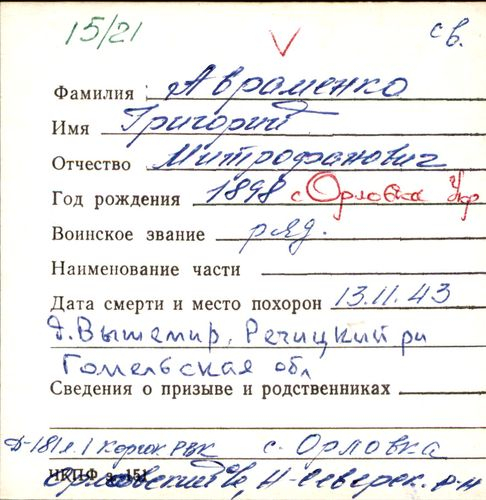 15/21 св.
Фамилия Авраменко
Имя Григорий
Отчество Митрофанович
Год рождения 1898 с Орловка Укр
Воинское звание ряд.
Наименование части
Дата смерти и место похорон 13.11.43
д. Вышемир, Речицкий р-н
Гомельская обл
Сведения о призыве и родственниках
Д-181л.1 РВК с. Орловка
ЧКПФ з. 151 Н-Северск. р-н